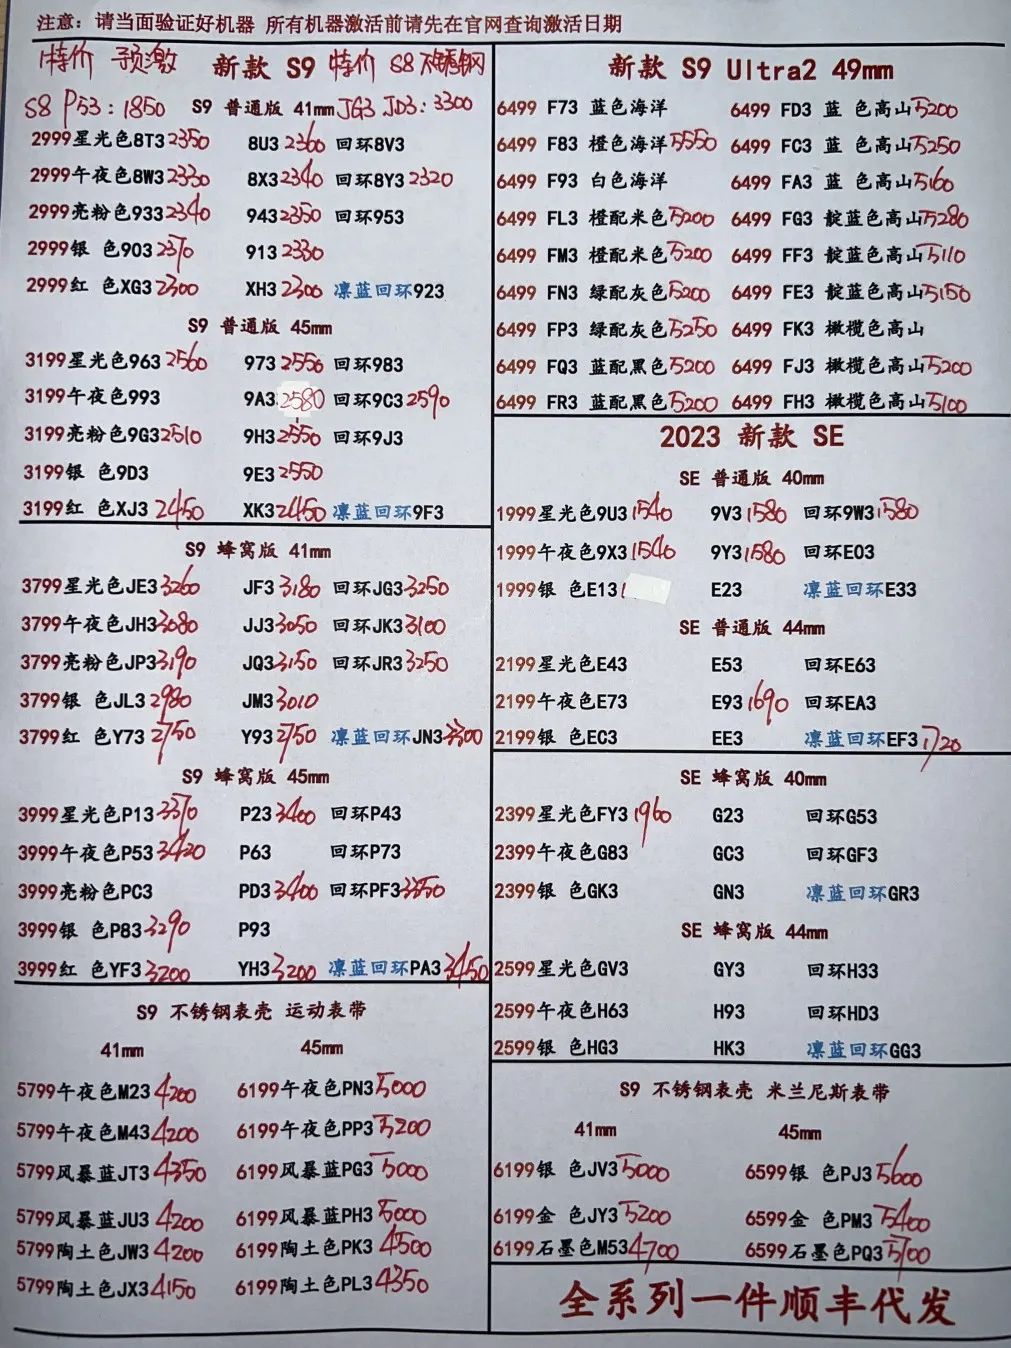 注意：请当面验证好机器 所有机器激活前请先在官网查询激活日期
特价 预激 新款 S9 特价 S8 不锈钢
S8 P53：1850 S9 普通版 41mm JG3 JD3：3300
2999星光色8T3 2350 8U3 2360 回环8V3
2999午夜色8W3 2330 8X3 2340 回环8Y3 2320
2999亮粉色933 2340 943 2350 回环953
2999银 色903 2370 913 2330
2999红 色XG3 2300 XH3 2300 凛蓝回环923
S9 普通版 45mm
3199星光色963 2560 973 2550 回环983
3199午夜色993 9A3 2580 回环9C3 2590
3199亮粉色9G3 2510 9H3 2550 回环9J3
3199银 色9D3 9E3 2550
3199红 色XJ3 2450 XK3 2450 凛蓝回环9F3
S9 蜂窝版 41mm
3799星光色JE3 3260 JF3 3180 回环JG3 3250
3799午夜色JH3 3080 JJ3 3050 回环JK3 3100
3799亮粉色JP3 3190 JQ3 3150 回环JR3 3250
3799银 色JL3 2980 JM3 3010
3799红 色Y73 2750 Y93 2750 凛蓝回环JN3 3300
S9 蜂窝版 45mm
3999星光色P13 3370 P23 3400 回环P43
3999午夜色P53 3420 P63 回环P73
3999亮粉色PC3 PD3 3400 回环PF3 3350
3999银 色P83 3290 P93
3999红 色YF3 3200 YH3 3200 凛蓝回环PA3 3450
S9 不锈钢表壳 运动表带
41mm 45mm
5799午夜色M23 4200 6199午夜色PN3 5000
5799午夜色M43 4200 6199午夜色PP3 5200
5799风暴蓝JT3 4350 6199风暴蓝PG3 5000
5799风暴蓝JU3 4200 6199风暴蓝PH3 5000
5799陶土色JW3 4200 6199陶土色PK3 4500
5799陶土色JX3 4150 6199陶土色PL3 4350
新款 S9 Ultra2 49mm
6499 F73 蓝色海洋 6499 FD3 蓝 色高山5200
6499 F83 橙色海洋5550 6499 FC3 蓝 色高山5250
6499 F93 白色海洋 6499 FA3 蓝 色高山5160
6499 FL3 橙配米色5200 6499 FG3 靛蓝色高山5280
6499 FM3 橙配米色5200 6499 FF3 靛蓝色高山5110
6499 FN3 绿配灰色5200 6499 FE3 靛蓝色高山5150
6499 FP3 绿配灰色5250 6499 FK3 橄榄色高山
6499 FQ3 蓝配黑色5200 6499 FJ3 橄榄色高山5200
6499 FR3 蓝配黑色5200 6499 FH3 橄榄色高山5100
2023 新款 SE
SE 普通版 40mm
1999星光色9U3 1540 9V3 1580 回环9W3 1580
1999午夜色9X3 1540 9Y3 1580 回环E03
1999银 色E13 E23 凛蓝回环E33
SE 普通版 44mm
2199星光色E43 E53 回环E63
2199午夜色E73 E93 1690 回环EA3
2199银 色EC3 EE3 凛蓝回环EF3 1720
SE 蜂窝版 40mm
2399星光色FY3 1960 G23 回环G53
2399午夜色G83 GC3 回环GF3
2399银 色GK3 GN3 凛蓝回环GR3
SE 蜂窝版 44mm
2599星光色GV3 GY3 回环H33
2599午夜色H63 H93 回环HD3
2599银 色HG3 HK3 凛蓝回环GG3
S9 不锈钢表壳 米兰尼斯表带
41mm 45mm
6199银 色JV3 5000 6599银 色PJ3 5600
6199金 色JY3 5200 6599金 色PM3 5400
6199石墨色M53 4700 6599石墨色PQ3 5100
全系列一件顺丰代发